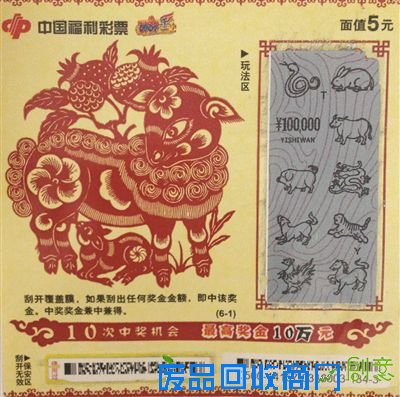 中国福利彩票
面值5元
玩法区
T
¥100,000
YISHIWAN
Y
刮开覆盖膜，如果刮出任何奖金金额，即中该奖
金。中奖奖金兼中兼得。
(6-1)
10次中奖机会 最高奖金10万元
刮开无效
保安区
废品回收商门
创意